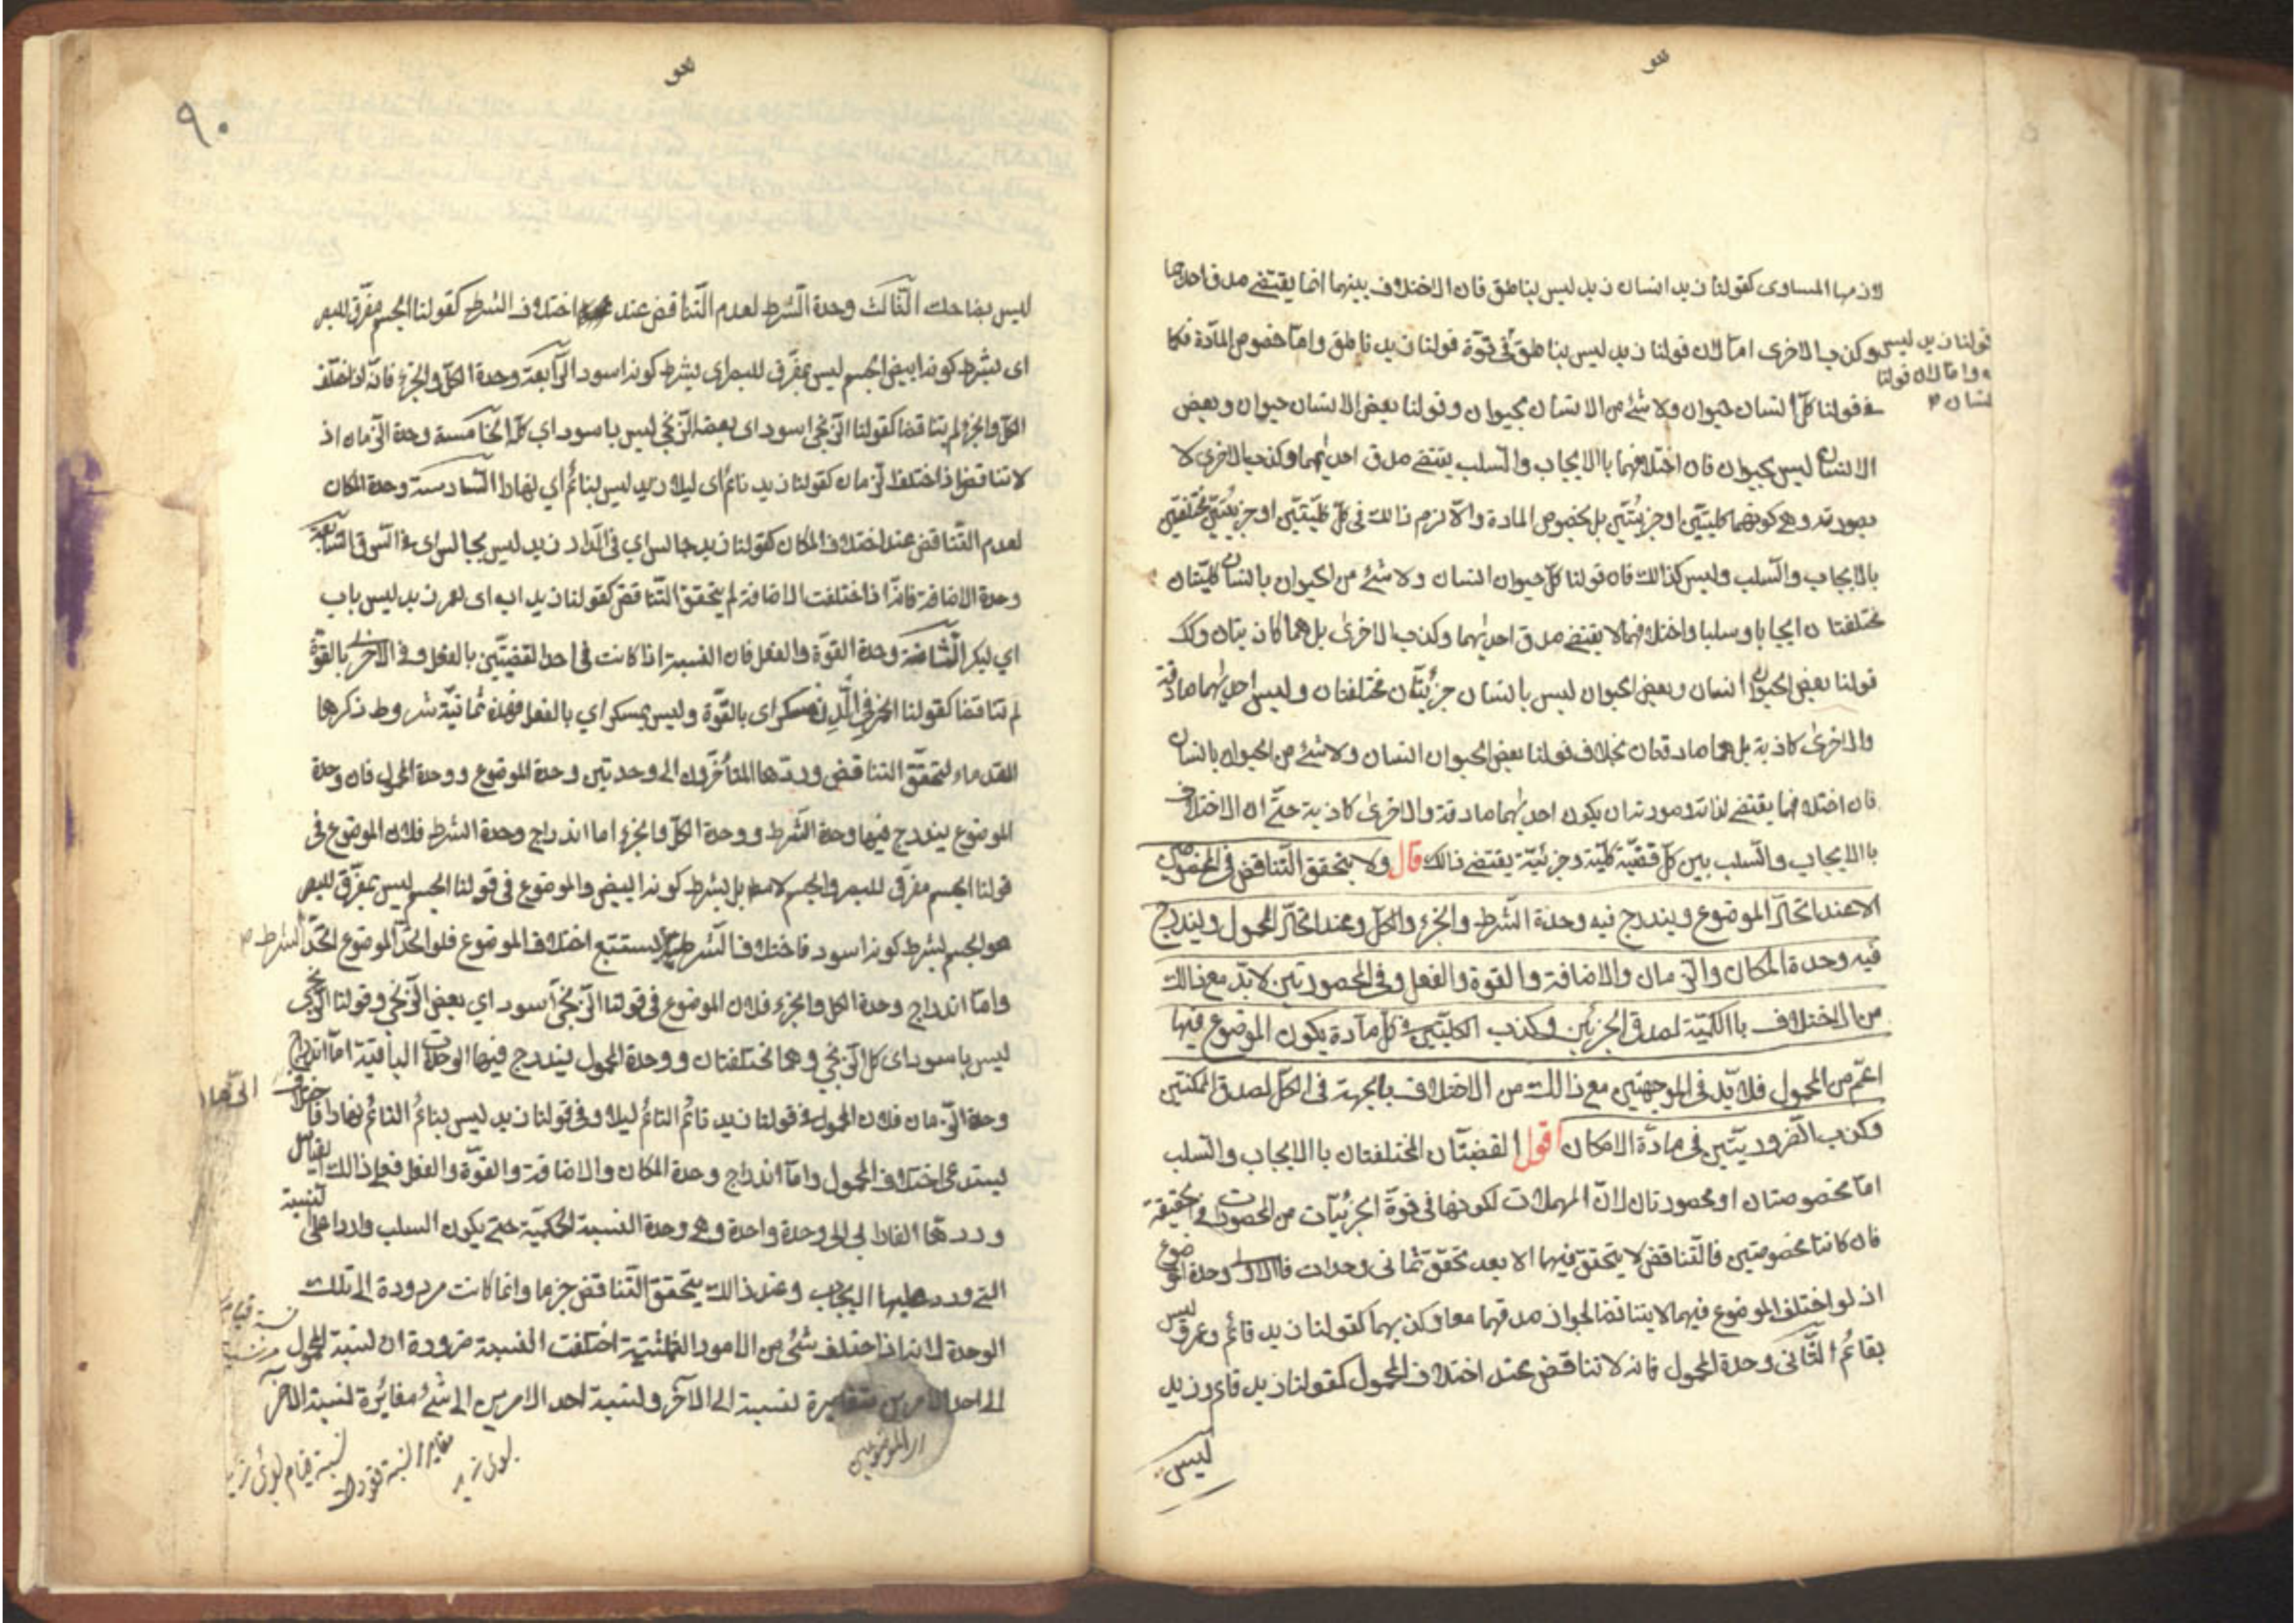 لازمها المساوى كقولنا زيد انسان زيد ليس بناطق فان الاختلاف بينهما انما يقتضى صدق احدهما
وكذب الاخرى اما لان قولنا زيد ليس بناطق فى قوة قولنا زيد ليس
واما لان قولنا
انسان
زيد ناطق واما خصوص المادة فكما
فى قولنا كل انسان حيوان ولا شئ من الانسان بحيوان وقولنا بعض الانسان حيوان وبعض
الانسان ليس بحيوان فان اختلافهما باالايجاب والسلب يقتضى صدق احدٰيهما وكذب الاخرى لا
بصورته وهى كونهما كليتين او جزئيتين بل بخصوص المادة والا لزم ذالك فى كل كليتين او جزئيتين مختلفتين
بالايجاب والسلب وليس كذالك فان قولنا كل حيوان انسان ولا شئ من الحيوان بانسان كليتان
مختلفتان ايجابا وسلبا واختلافهما لا يقتضى صدق احدٰيهما وكذب الاخرىٰ بل هما كاذبتان وكك
قولنا بعض الحيوان انسان وبعض الحيوان ليس بانسان جزئيتان مختلفتان وليس احدٰيهما صادقة
والاخرىٰ كاذبة بل هما صادقتان بخلاف قولنا بعض الحيوان انسان ولا شئ من الحيوان بانسان
فان اختلافهما يقتضى لذاته وصورته ان يكون احدٰيهما صادقة والاخرىٰ كاذبة حتى ان الاختلاف
باالايجاب والسلب بين كل قضية كلية وجزئية يقتضى ذالك قال ولا يتحقق التناقض فى المخصوصتين
الا عند اتحاد الموضوع ويندرج فيه وحدة الشرط والجزء والكل وعند اتحاد المحمول ويندرج
فيه وحدة المكان والزمان والاضافة والقوة والفعل وفى المحصورتين لا بد مع ذالك
من الاختلاف باالكمية لصدق الجزئين وكذب الكليتين فى كل مادة يكون الموضوع فيها
اعم من المحمول فلا بد فى الموجهتين مع ذالك من الاختلاف بالجهة فى الكل لصدق الممكنتين
وكذب الضروريتين فى مادة الامكان اقول القضيتان المختلفتان باالايجاب والسلب
اما مخصوصتان او محصورتان لان المهملات لكونها فى قوة الجزئيات من المحصورات فى الحقيقة
فان كانتا مخصوصتين فالتناقض لا يتحقق فيهما الا بعد تحقق ثمانى وحدات فالاولى وحدة الموضوع
اذ لو اختلف الموضوع فيهما لا يتناقضا لجواز صدقهما معا وكذبهما كقولنا زيد قائم وعمرو ليس
بقائم الثانى وحدة المحمول فانه لا تناقض عند اختلاف المحمول كقولنا زيد قائم وزيد
ليس
٩٠
ليس بضاحك الثالث وحدة الشرط لعدم التناقض عند اختلاف الشرط كقولنا الجسم مفرق للبصر
اى بشرط كونه ابيض الجسم ليس بمفرق للبصر اى بشرط كونه اسود الرابعة وحدة الكل والجزء فانه اذا اختلف
الكل والجزء لم يتناقضا كقولنا الزنجى اسود اى بعضه الزنجى ليس باسود اى كله الخامسة وحدة الزمان اذ
لا تناقض اذا اختلف الزمان كقولنا زيد نائم اى ليلا زيد ليس بنائم اي نهارا السادسة وحدة المكان
لعدم التناقض عند اختلاف المكان كقولنا زيد جالس اي فى الدار زيد ليس بجالس اى فى السوق السابعة
وحدة الاضافة فانه اذا اختلفت الاضافة لم يتحقق التناقض كقولنا زيد اب اى لعمر زيد ليس باب
اي لبكر الثامنة وحدة القوة والفعل فان النسبة اذا كانت فى احد القضيتين بالفعل وفى الاخرىٰ بالقوة
لم تتناقضا كقولنا الخمر فى الدن مسكر اى بالقوة وليس بمسكر اي بالفعل فهذه ثمانية شروط ذكرها
القدماء لتحقق التناقض وردها المتأخرون الى وحدتين وحدة الموضوع ووحدة المحمول فان وحدة
الموضوع يندرج فيها وحدة الشرط ووحدة الكل والجزء اما اندراج وحدة الشرط فلان الموضوع فى
قولنا الجسم مفرق للبصر والجسم لا مط بل بشرط كونه ابيض والموضوع فى قولنا الجسم ليس بمفرق للبصر
هو الجسم بشرط كونه اسود فاختلاف الشرط يستتبع اختلاف الموضوع فلو اتحد الموضوع اتحد الشرط
واما اندراج وحدة الكل والجزء فلان الموضوع فى قولنا الزنجى اسود اي بعض الزنجى وقولنا الزنجى
ليس باسود اى كل الزنجي وهما مختلفتان ووحدة المحمول يندرج فيها الوحدات الباقية اما اندراج
وحدة الزمان فلان المحمول فى قولنا زيد نائم النائم ليلا وفى قولنا زيد ليس بنائم النائم نهارا فاختلاف
يستدعى اختلاف المحمول واما اندراج وحدة المكان والاضافة والقوة والفعل فعلى ذالك بقياس
وردها الفارابى الى وحدة واحدة وهى وحدة النسبة الحكمية حتى يكون السلب واردا على النسبة
التى ورد عليها الايجاب وعند ذالك يتحقق التناقض جزما وانما كانت مردودة الى تلك
الوحدة لانه اذا اختلف شئ من الامور الثمانية اختلفت النسبة ضرورة ان نسبة المحمول
الى احد الامرين متغايرة لنسبة الى الآخر ونسبة احد الامرين الى شئ مغايرة لنسبة الآخر